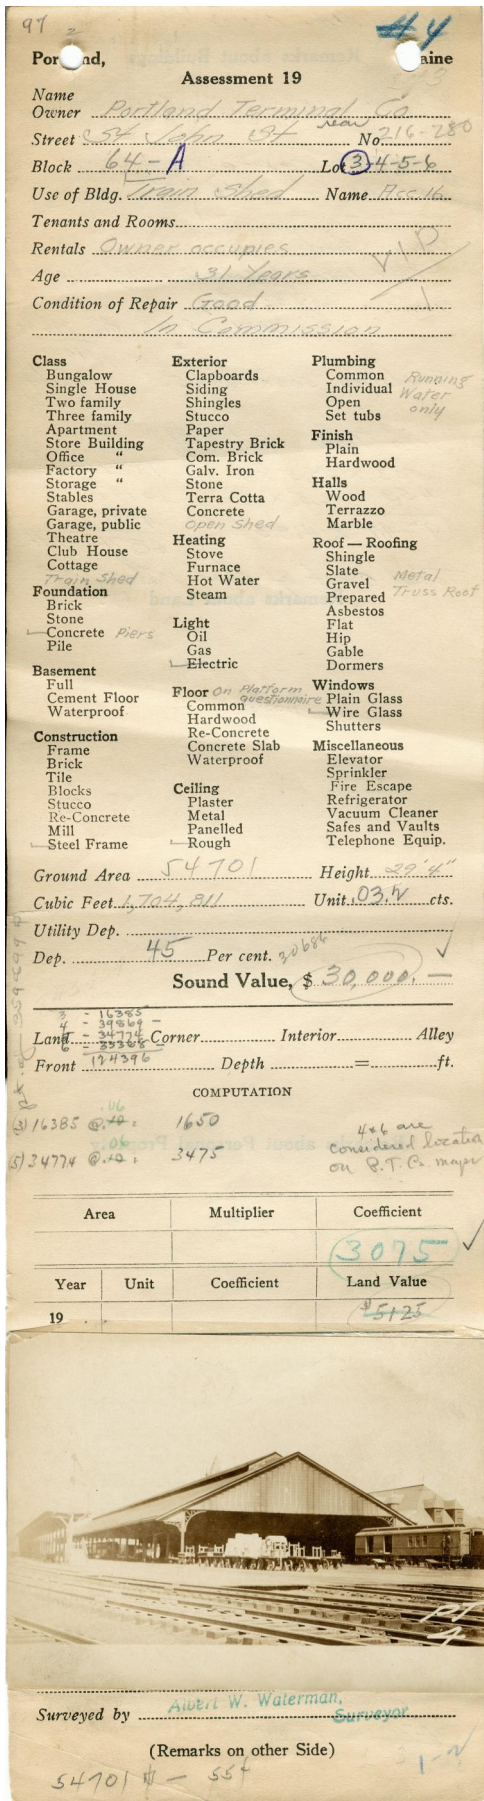 97
44
Portland, Maine
Assessment 19
Name
Owner Portland Terminal Co
Street St John St rear No. 216-280
Block 64-A Lot 3-4-5-6
Use of Bldg. Train Shed Name Acc. 16
Tenants and Rooms
Rentals Owner occupies
Age 31 Years
Condition of Repair Good
In Commission
Class
Bungalow
Single House
Two family
Three family
Apartment
Store Building
Office "
Factory "
Storage "
Stables
Garage, private
Garage, public
Theatre
Club House
Cottage
Train Shed
Foundation
Brick
Stone
Concrete Piers
Pile
Basement
Full
Cement Floor
Waterproof
Construction
Frame
Brick
Tile
Blocks
Stucco
Re-Concrete
Mill
Steel Frame
Exterior
Clapboards
Siding
Shingles
Stucco
Paper
Tapestry Brick
Com. Brick
Galv. Iron
Stone
Terra Cotta
Concrete
Open Shed
Heating
Stove
Furnace
Hot Water
Steam
Light
Oil
Gas
Electric
Floor On Platform questionnaire
Common
Hardwood
Re-Concrete
Concrete Slab
Waterproof
Ceiling
Plaster
Metal
Panelled
Rough
Plumbing
Common
Individual
Open
Set tubs
Running
Water
only
Finish
Plain
Hardwood
Halls
Wood
Terrazzo
Marble
Roof — Roofing
Shingle
Slate
Gravel
Prepared
Asbestos
Flat
Hip
Gable
Dormers
Metal
Truss Roof
Windows
Plain Glass
Wire Glass
Shutters
Miscellaneous
Elevator
Sprinkler
Fire Escape
Refrigerator
Vacuum Cleaner
Safes and Vaults
Telephone Equip.
Ground Area 54701 Height 29'4"
Cubic Feet 1,704,811 Unit .03.2 cts.
Utility Dep.
Dep. 45 Per cent. 30686
Sound Value, $ 30,000. —
3 - 16385
4 - 39869 -
Land 5 - 34774 Corner Interior Alley
6 - 33368 -
Front 124396 Depth = ft.
COMPUTATION
.06
(3) 16385 @ .10 = 1650
.06
(5) 34774 @ .10 = 3475
4 & 6 are
considered location
on P. T. Co. major
Area Multiplier Coefficient
3075
Year Unit Coefficient Land Value
19 $5125
Surveyed by Albert W. Waterman,
Surveyor
(Remarks on other Side)
1-2
54701 # - 55¢